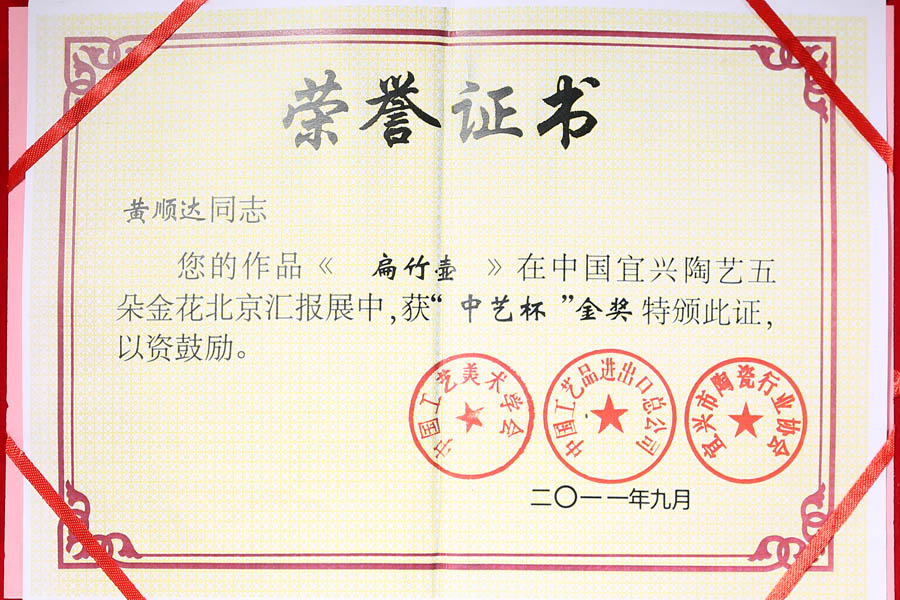 荣誉证书
黄顺达同志
您的作品《 扁竹壶 》在中国宜兴陶艺五
朵金花北京汇报展中，获“中艺杯”金奖特颁此证，
以资鼓励。
中国工艺美术学会
中国工艺品进出口总公司
宜兴市陶瓷行业协会
二〇一一年九月